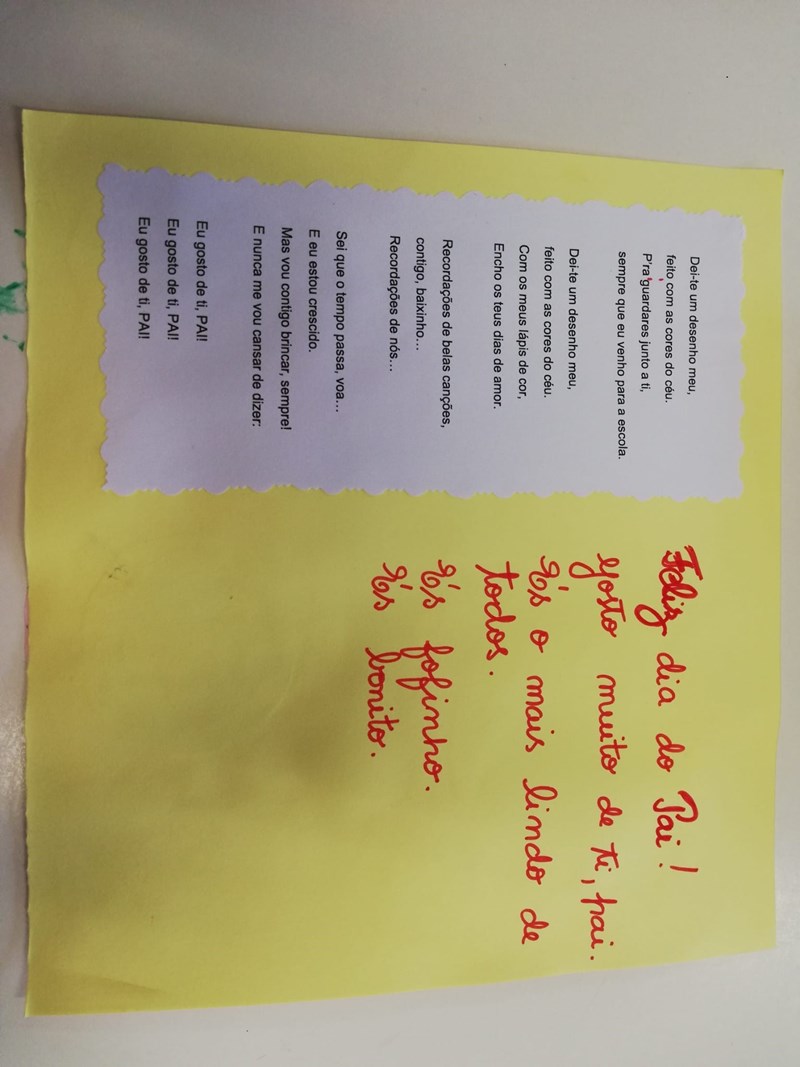 Dei-te um desenho meu,
feito com as cores do céu.
P'ra guardares junto a ti,
sempre que eu venho para a escola.
Dei-te um desenho meu,
feito com as cores do céu.
Com os meus lápis de cor,
Encho os teus dias de amor.
Recordações de belas canções,
contigo, baixinho...
Recordações de nós...
Sei que o tempo passa, voa...
E eu estou crescido.
Mas vou contigo brincar, sempre!
E nunca me vou cansar de dizer:
Eu gosto de ti, PAI!
Eu gosto de ti, PAI!
Eu gosto de ti, PAI!
Feliz dia do Pai!
gosto muito de ti, pai.
És o mais lindo de
todos.
És fofinho.
És bonito.